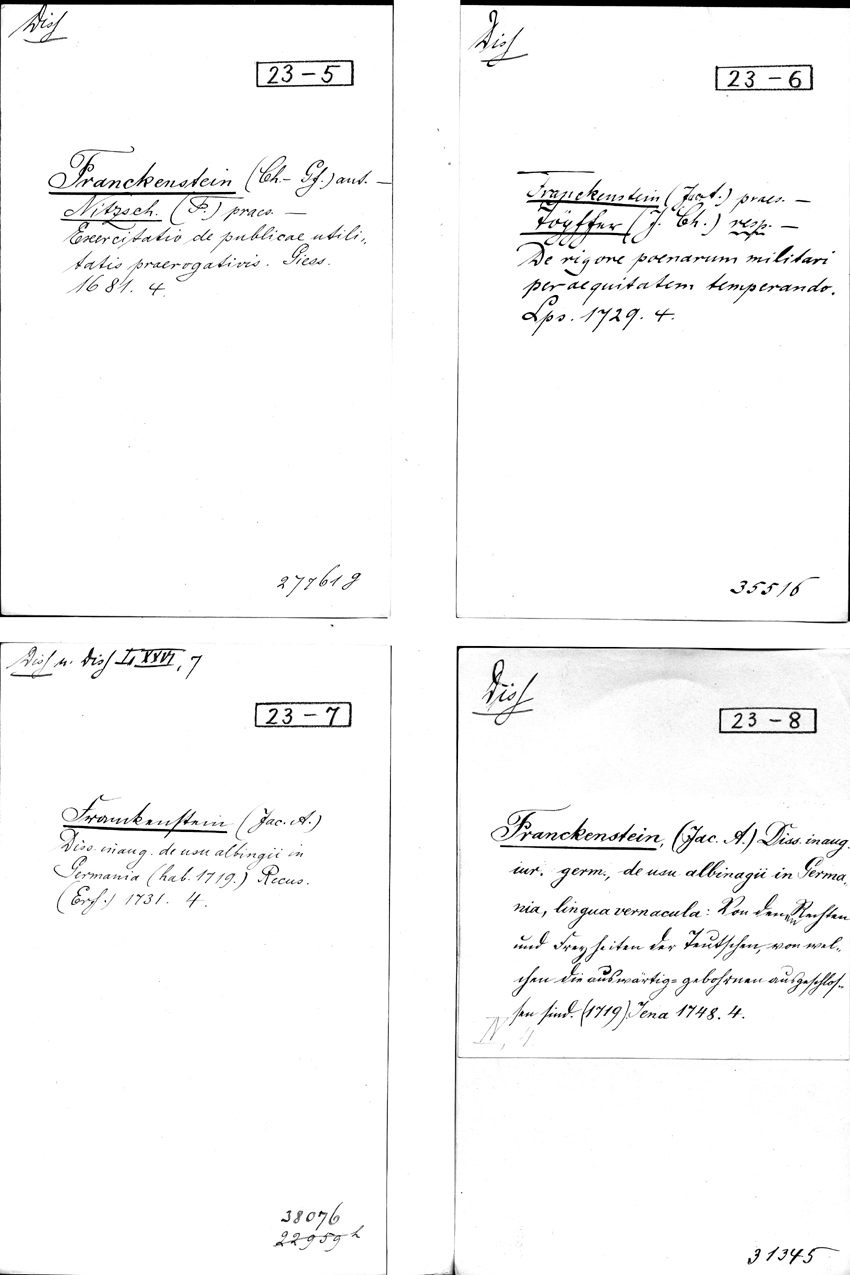 Diss
23 - 5
Franckenstein (Ch. Gf.) aut. —
Nitzsch. (F.) praes. —
Exercitatio de publicae utili-
tatis praerogativis. Giess.
1681. 4.
277618
Diss
23 - 6
Franckenstein (Jac. A.) praes. —
Töpffer (J. Ch.) resp. —
De rigore poenarum militari
per aequitatem temperando.
Lps. 1729. 4.
35516
Diss u. Diss I, XXVI, 7
23 - 7
Franckenstein (Jac. A.)
Diss. inaug. de usu albingii in
Germania (hab. 1719.) Recus.
(Erf.) 1731. 4.
38076
22959
Diss
23 - 8
Franckenstein, (Jac. A.) Diss. inaug.
iur. germ., de usu albinagii in Germa,
nia, lingua vernacula: Von denen Rechten
und Freyheiten der Teutschen, von wel-
chen die auswärtig=gebohrnen ausgeschlos-
sen sind. (1719) Jena 1748. 4.
31345